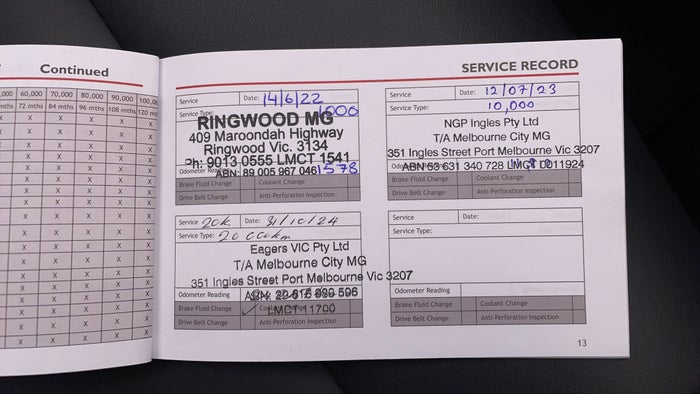 Continued
,000 60,000 70,000 80,000 90,000 100,00
mths 72 mths 84 mths 96 mths 108 mths 120 mt
SERVICE RECORD
Service Date: 14/6/22
Service Type: 1000
RINGWOOD MG
409 Maroondah Highway
Ringwood Vic. 3134
Ph: 9013 0555 LMCT 1541
Odometer Reading ABN: 89 005 967 046 1578
Brake Fluid Change Coolant Change
Drive Belt Change Anti-Perforation Inspection
Service Date: 12/07/23
Service Type: 10,000
NGP Ingles Pty Ltd
T/A Melbourne City MG
351 Ingles Street Port Melbourne Vic 3207
ABN 53 631 340 728 LMCT 0011924
Brake Fluid Change Coolant Change
Drive Belt Change Anti-Perforation Inspection
Service 20k Date: 31/10/24
Service Type: 20 000km
Eagers VIC Pty Ltd
T/A Melbourne City MG
351 Ingles Street Port Melbourne Vic 3207
Odometer Reading
Brake Fluid Change ✓ LMCT 11700
Drive Belt Change Anti-Perforation Inspection
Service Date:
Service Type:
Odometer Reading
Brake Fluid Change Coolant Change
Drive Belt Change Anti-Perforation Inspection
13